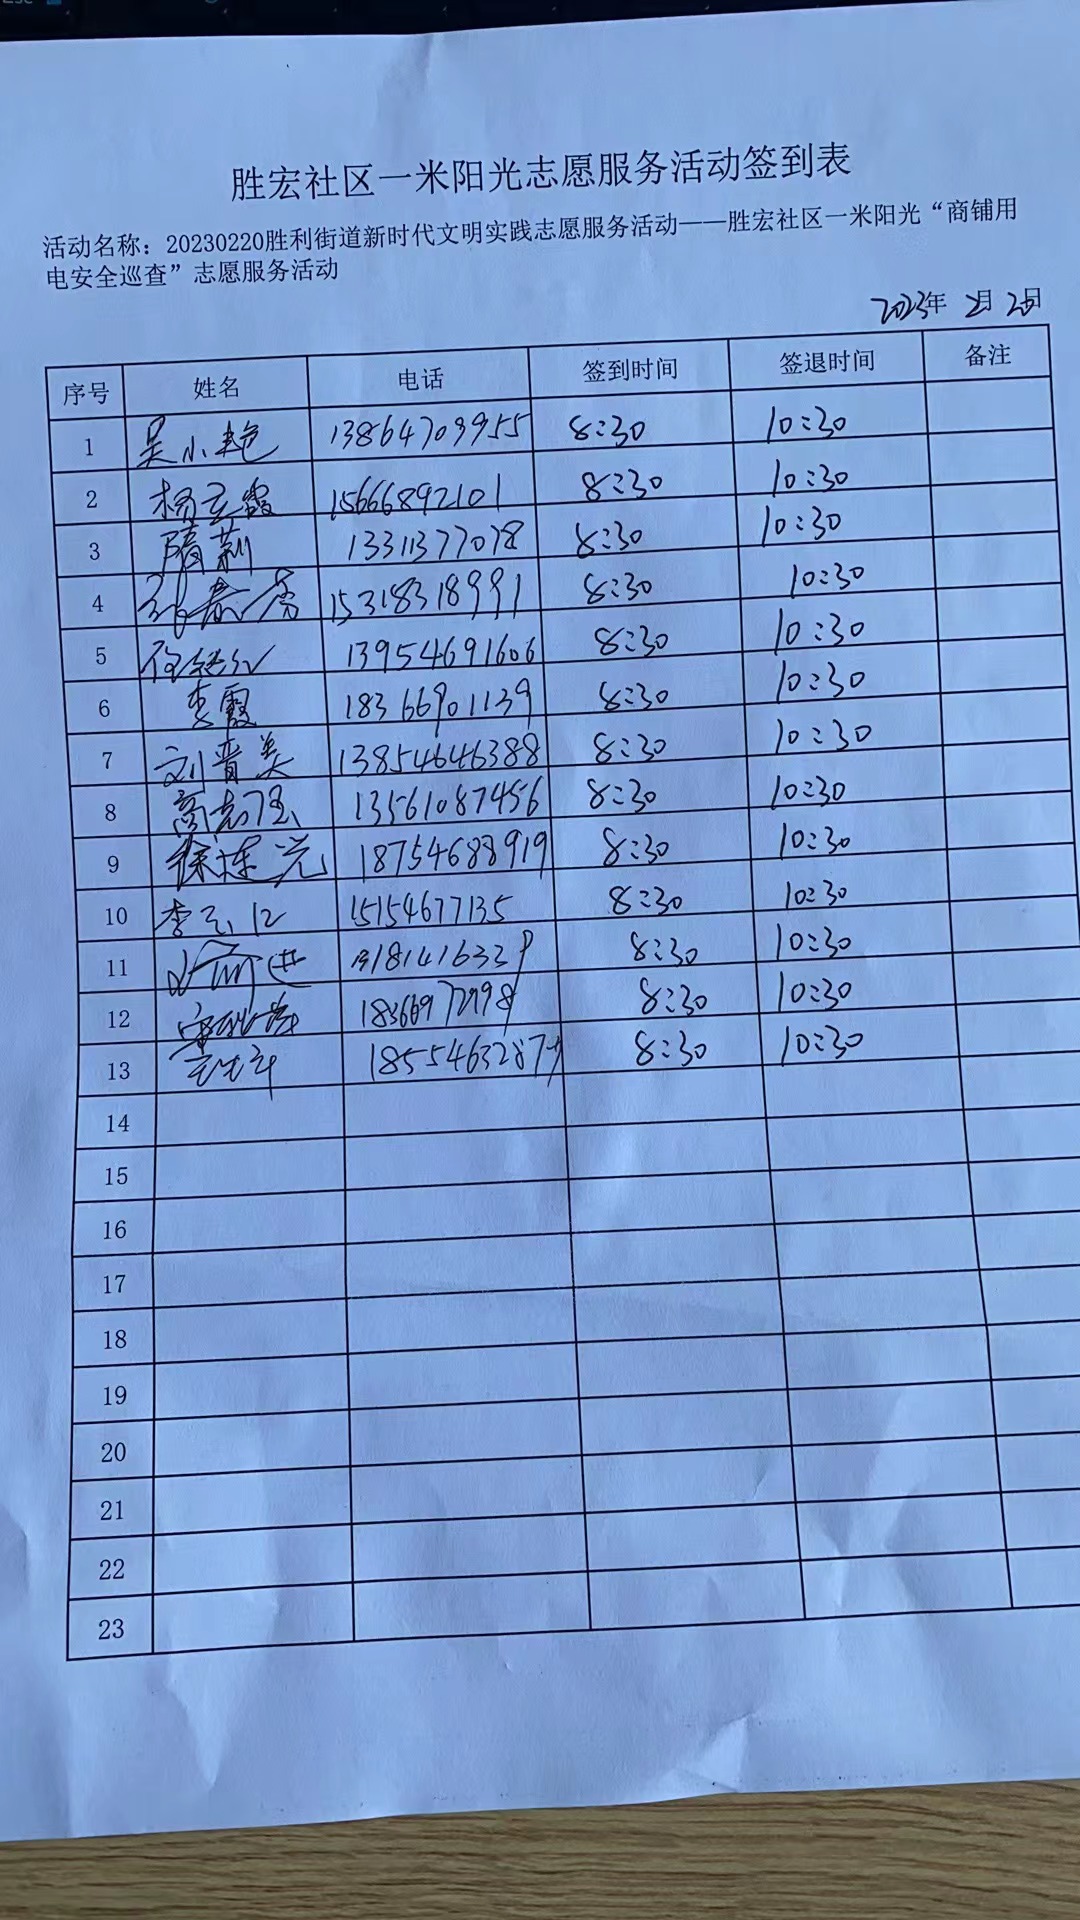 胜宏社区一米阳光志愿服务活动签到表
活动名称：20230220胜利街道新时代文明实践志愿服务活动——胜宏社区一米阳光“商铺用
电安全巡查”志愿服务活动
2023年 2月 20日
序号 姓名 电话 签到时间 签退时间 备注
1 吴小艳 13864709955 8:30 10:30
2 杨立霞 15666892101 8:30 10:30
3 隋莉 13311377078 8:30 10:30
4 15318318991 8:30 10:30
5 13954691606 8:30 10:30
6 李霞 18366901139 8:30 10:30
7 刘晋美 13854646388 8:30 10:30
8 高志强 13561087456 8:30 10:30
9 徐连光 18754688919 8:30 10:30
10 李 15154677135 8:30 10:30
11 8:30 10:30
12 8:30 10:30
13 8:30 10:30
14
15
16
17
18
19
20
21
22
23